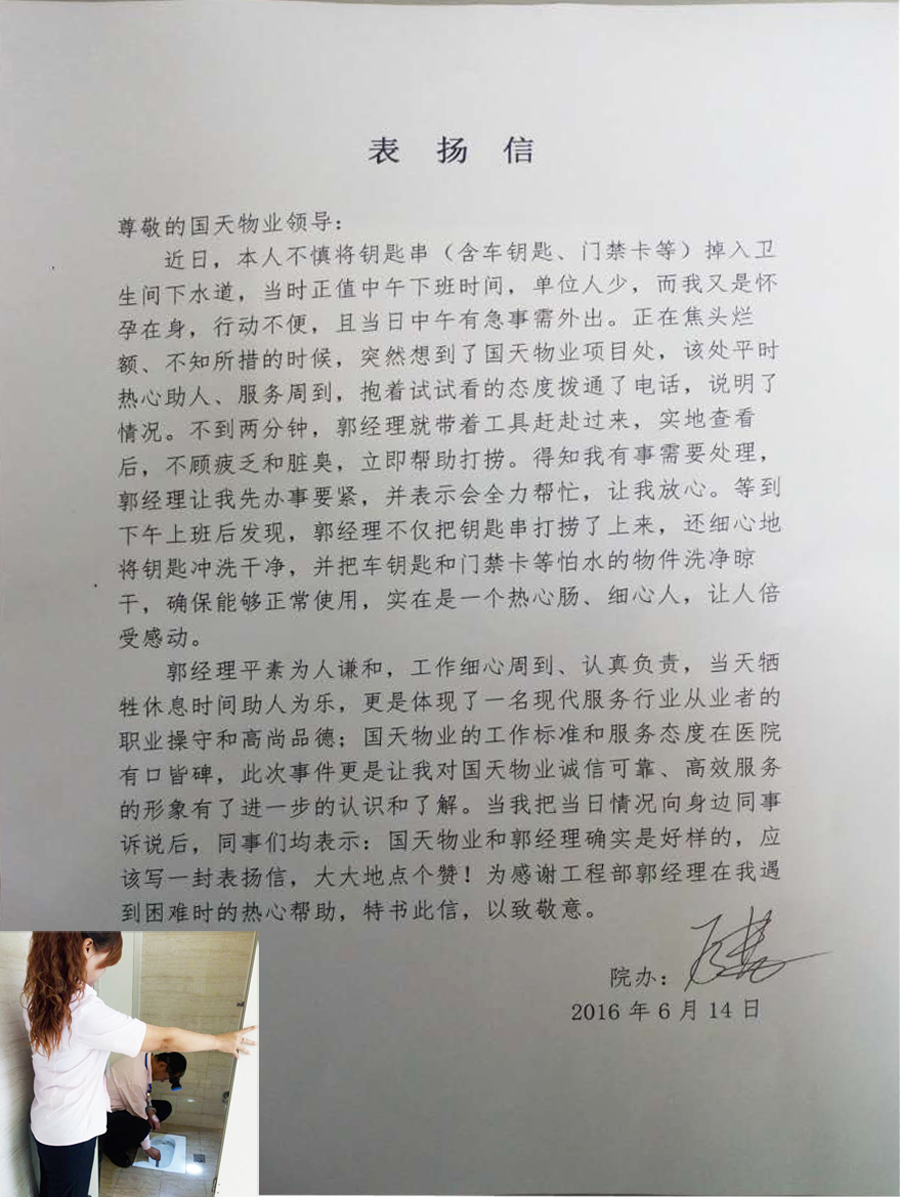 表 扬 信
尊敬的国天物业领导：
近日，本人不慎将钥匙串（含车钥匙、门禁卡等）掉入卫
生间下水道，当时正值中午下班时间，单位人少，而我又是怀
孕在身，行动不便，且当日中午有急事需外出。正在焦头烂
额、不知所措的时候，突然想到了国天物业项目处，该处平时
热心助人、服务周到，抱着试试看的态度拨通了电话，说明了
情况。不到两分钟，郭经理就带着工具赶赴过来，实地查看
后，不顾疲乏和脏臭，立即帮助打捞。得知我有事需要处理，
郭经理让我先办事要紧，并表示会全力帮忙，让我放心。等到
下午上班后发现，郭经理不仅把钥匙串打捞了上来，还细心地
将钥匙冲洗干净，并把车钥匙和门禁卡等怕水的物件洗净晾
干，确保能够正常使用，实在是一个热心肠、细心人，让人倍
受感动。
郭经理平素为人谦和，工作细心周到、认真负责，当天牺
牲休息时间助人为乐，更是体现了一名现代服务行业从业者的
职业操守和高尚品德；国天物业的工作标准和服务态度在医院
有口皆碑，此次事件更是让我对国天物业诚信可靠、高效服务
的形象有了进一步的认识和了解。当我把当日情况向身边同事
诉说后，同事们均表示：国天物业和郭经理确实是好样的，应
该写一封表扬信，大大地点个赞！为感谢工程部郭经理在我遇
到困难时的热心帮助，特书此信，以致敬意。
院办：
2016 年 6 月 14 日